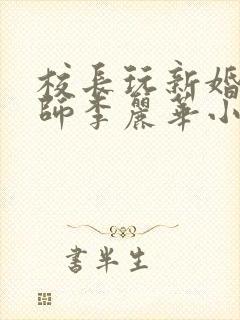 校長玩新婚
師李麗華小
書半生